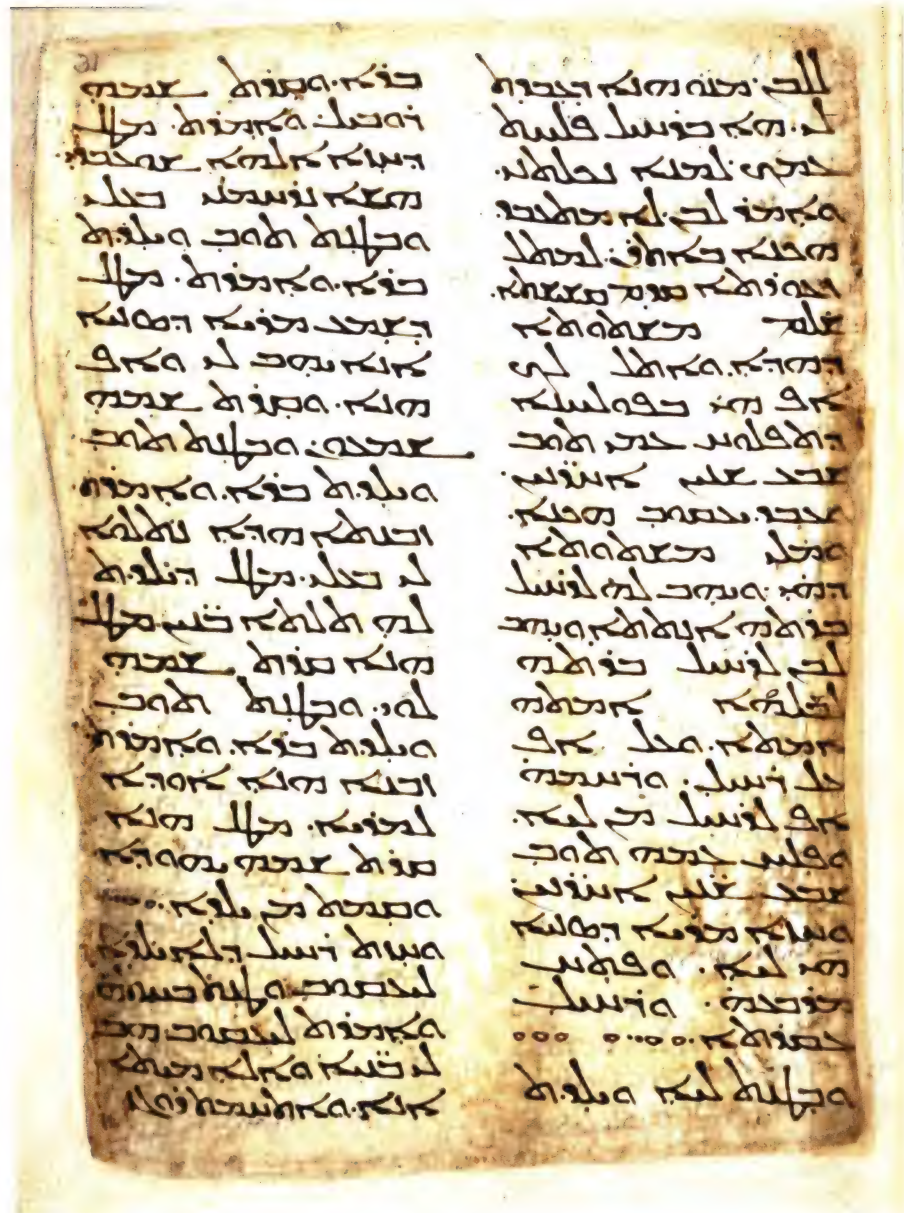 ܠܠܒܢ. ܡܢܘ ܗܢܐ ܕܥܒܕܬ
ܠܝ. ܗܐ ܒܪܚܝܠ ܦܠܚܬ
ܥܡܟ. ܠܡܢܐ ܢܟܠܬܢܝ.
ܘܐܡܪ ܠܒܢ. ܠܐ ܡܬܥܒܕ
ܗܟܢܐ ܒܐܬܪܢ. ܠܡܬܠ
ܙܥܘܪܬܐ ܩܕܡ ܩܫܝܫܬܐ.
ܫܠܡ ܡܫܬܘܬܐ
ܕܗܕܐ. ܘܐܬܠ ܠܟ
ܐܦ ܗܝ ܒܦܘܠܚܢܐ
ܕܬܦܠܘܚ ܥܡܝ ܬܘܒ
ܫܒܥ ܫܢܝܢ ܐܚܪ̈ܢܝܢ.
ܥܒܕ ܝܥܩܘܒ ܗܟܢܐ.
ܘܫܠܡ ܡܫܬܘܬܐ
ܕܗܝ. ܘܝܗܒ ܠܗ ܠܪܚܝܠ
ܒܪܬܗ ܐܢܬܬܐ. ܘܝܗܒ
ܠܒܢ ܠܪܚܝܠ ܒܪܬܗ
ܠܒܠܗܐ ܐܡܬܗ
ܐܡܬܐ. ܘܥܠ ܐܦ
ܥܠ ܪܚܝܠ. ܘܪܚܡܗ
ܐܦ ܠܪܚܝܠ ܡܢ ܠܝܐ.
ܘܦܠܚ ܥܡܗ ܬܘܒ
ܫܒܥ ܫܢܝܢ ܐܚܪ̈ܢܝܢ
ܘܚܙܐ ܡܪܝܐ ܕܣܢܝܐ
ܗܝ ܠܝܐ. ܘܦܬܚ
ܡܪܒܥܗ. ܘܪܚܝܠ
ܥܩܪܬܐ.
ܘܒܛܢܬ ܠܝܐ ܘܝܠܕܬ
ܒܪܐ. ܘܩܪܬ ܫܡܗ
ܪܘܒܝܠ. ܘܐܡܪܬ. ܡܛܠ
ܕܚܙܐ ܐܠܗܐ ܫܘܥܒܕܝ.
ܗܫܐ ܢܪܚܡܢܝ ܒܥܠܝ
ܘܒܛܢܬ ܬܘܒ ܘܝܠܕܬ
ܒܪܐ. ܘܐܡܪܬ. ܡܛܠ
ܕܫܡܥ ܡܪܝܐ ܕܣܢܝܐ
ܐܢܐ ܝܗܒ ܠܝ ܘܐܦ
ܗܢܐ. ܘܩܪܬ ܫܡܗ
ܫܡܥܘܢ. ܘܒܛܢܬ ܬܘܒ
ܘܝܠܕܬ ܒܪܐ. ܘܐܡܪܬ
ܙܒܢܬܐ ܗܕܐ ܢܬܠܘܐ
ܠܝ ܒܥܠܝ. ܡܛܠ ܕܝܠܕܬ
ܠܗ ܬܠܬܐ ܒܢ̈ܝܢ. ܡܛܠ
ܗܢܐ ܩܪܬ ܫܡܗ
ܠܘܝ. ܘܒܛܢܬ ܬܘܒ
ܘܝܠܕܬ ܒܪܐ. ܘܐܡܪܬ
ܙܒܢܐ ܗܢܐ ܐܘܕܐ
ܠܡܪܝܐ. ܡܛܠ ܗܢܐ
ܩܪܬ ܫܡܗ ܝܗܘܕܐ
ܘܩܡܬ ܡܢ ܝܠܕܐ.
ܘܚܙܬ ܪܚܝܠ ܕܠܐ ܝܠܕܐ
ܠܝܥܩܘܒ ܘܛܢܬ ܒܚܬܗ
ܘܐܡܪܬ ܠܝܥܩܘܒ ܗܒ
ܠܝ ܒܢ̈ܝܐ ܘܐܠܐ ܡܝܬܐ
ܐܢܐ. ܘܐܬܚܡܬ ܪܘܓܙܗ